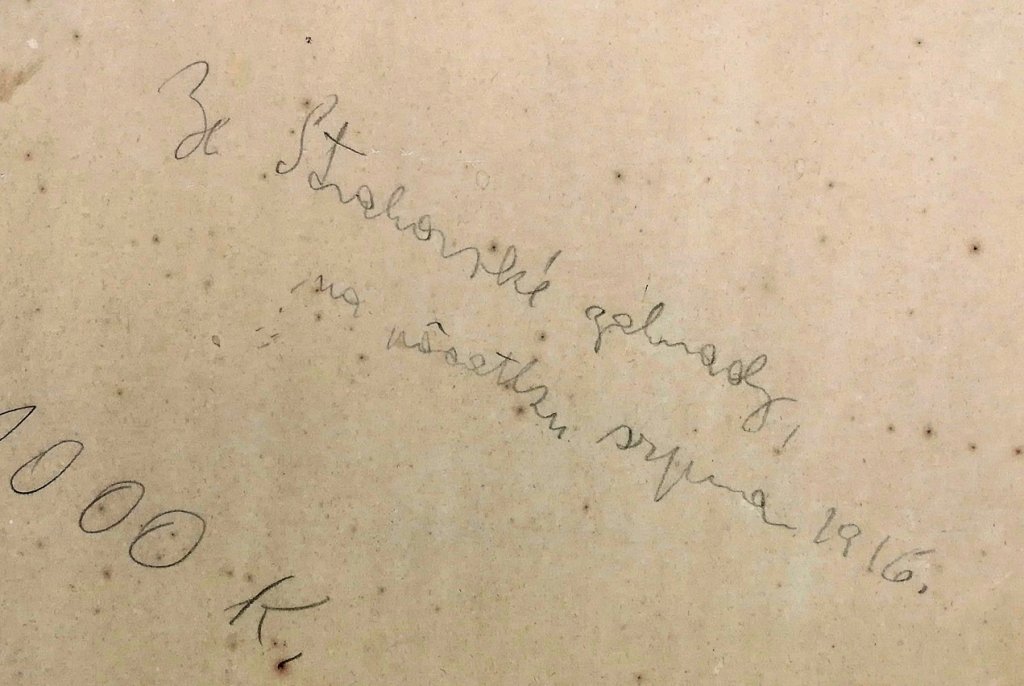 Ze Strahovské zahrady,
na počátku srpna 1916.
1000 K.